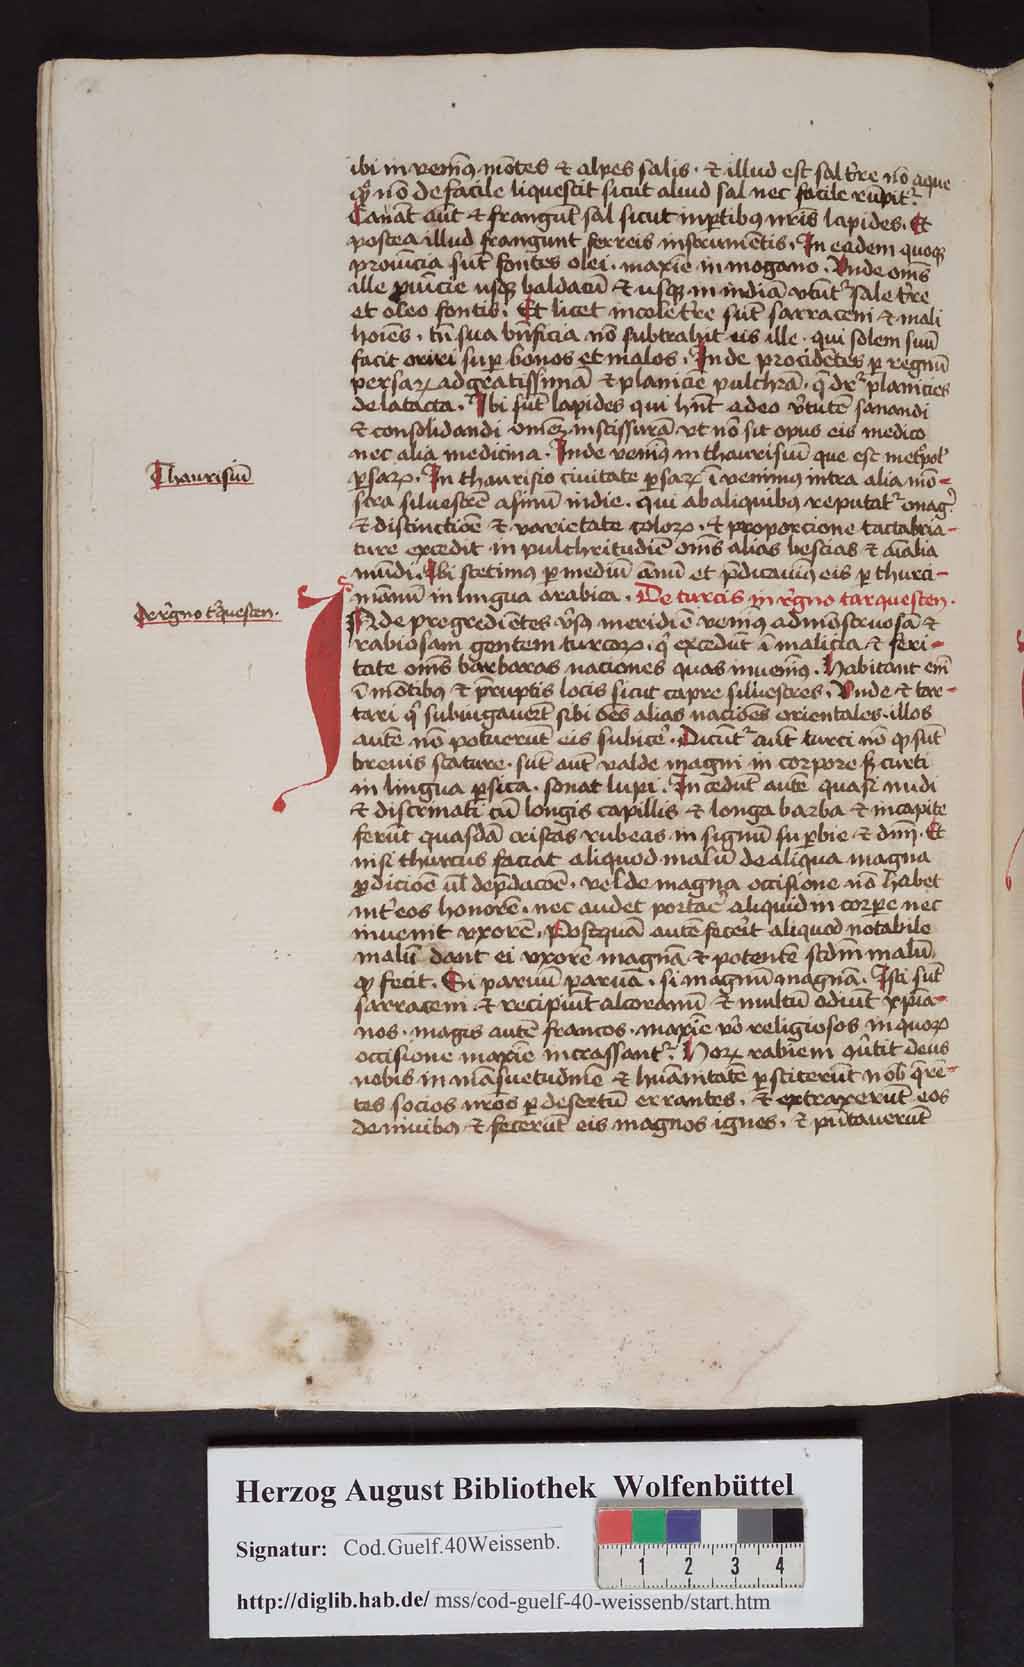 ibi inuenim9 mōtes & alpes salis . & illud est sal t're nō aque
qꝫ nō de facile liquescit sicut aliud sal nec facile rūpit᷑.
Cauāt aūt & frangūt sal sicut in ꝑtibus nr̄is lapides . Et
postea illud frangunt ferreis instrumētis . In eadem quoqꝫ
prouīcia sūt fontes olei . maxīe in mogano . Vnde oīns
ille ꝓuīcie usqꝫ baldacū & usqꝫ in indiā vtūt᷑ sale t're
et oleo fontis . Et licet incole t're sūt sarraceni & mali
hoīes . tn̄ sua bn̄ficia nō subtrahit eis ille . qui solem suū
facit oriri suꝑ bonos et malos . Inde procidētes ꝑ regnū
persaꝝ ad gratissimā & planicie pulchrā . q̄ dr̄ planicies
delatacta . Ibi sūt lapides qui hn̄t adeo v̓tutē sanandi
& consolidandi omēꝫ inscissurā vt nō sit opus eis medico
nec alia medicina . Inde venim9 in thaurisiū que est met'pol'
ꝑsaꝝ . In thaurisio ciuitate ꝑsaꝝ ī venimus intra alia mō-
stra siluestrē asinū indie . qui ab aliquibus reputat᷑ onag̓
& distinctiōe & varietate coloꝝ . & proporcione tactabria-
ture excedit in pulchritudiē om̄s alias bestias & aīalia
mūdi . Ibi stetimus ꝑ mediū annū et p̄dicauim9 eis ꝑ thurci-
mānum in lingua arabica . De turcis in r̓gno tarquesten .
Thaurisiū
De r̓gno t'questen .
INde pregrediētes v̓sꝫ meridiē venim9 ad mōstruosā &
rabiosam gentem turcoꝝ . q' excedūt ī malicia & feri-
tate om̄s barbaras naciones quas inuenim9 . Habitant em̄
ī mōtibus & p̄ruptis locis sicut capre siluestres . Vnde & tar-
tari q' subiugauer̄t sibi oēs alias naciōes orientales . illos
autē nō potuerūt eis subice' . Dicūt᷑ aūt turci nō qꝫ sūt
breuis stature . sūt aūt valde magni in corpore sꝫ curti
in lingua ꝑsica . sonat lupi . Incedūt autē quasi nudi
& discrinati cū longis capillis & longa barba & in capite
ferūt quasdā cristas rubeas in signū suꝑbie & dm̄ . Et
nisi thurcus faciat aliquod malū de aliqua magna
ꝓdiciōe ul̄ dep̄dacōe . vel de magna occisione nō habet
int' eos honorē . nec audet portac̓ aliquid in corꝑe nec
inuenit vxorē . Postquā autē fecer̓t aliquod notabile
malū dant ei vxorē magnā & potentē scd̄m malū
qꝫ fecit . Si paruū paruā . si magnū magnā . Isti sūt
sarraceni & recipiūt alcoranū & multū odiūt xp̄ia-
nos . magis autē francos . maxīe v̓o religiosos in quoꝝ
occisione maxīe incrassant᷑ . Hoꝝ rabiem q̄u̓tit deus
nobis in māsuetudinē & hūanitatē ꝑsciterūt nob' q̄rē-
tes socios nr̄os ꝑ desertū errantes . & extraxerūt eos
de niuibus & fecerūt eis magnos ignes . & pn̄tauerūt
Herzog August Bibliothek Wolfenbüttel
Signatur: Cod.Guelf.40Weissenb.
1 2 3 4
http://diglib.hab.de/ mss/cod-guelf-40-weissenb/start.htm